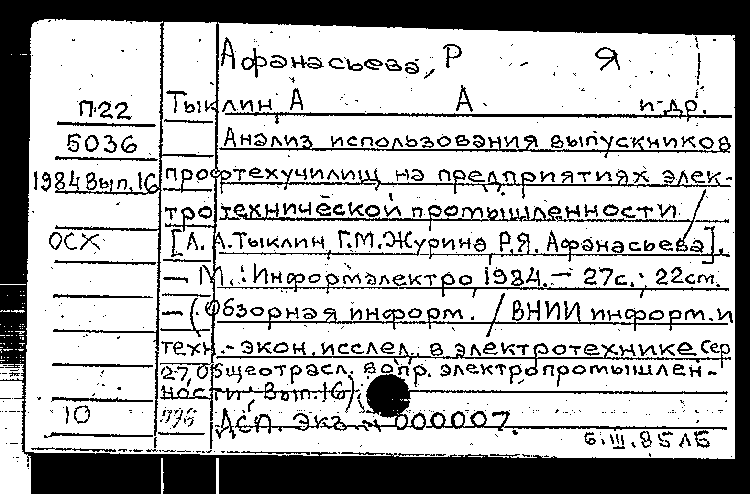 Афанасьева, Р Я
П-22 Тыклин, А А и др.
5036 Анализ использования выпускников
1984 Вып.16 профтехучилищ на предприятиях элек-
тротехнической промышленности /
ОСХ [А. А. Тыклин, Г.М. Журина, Р.Я. Афанасьева].
— М.: Информэлектро, 1984. — 27с.; 22см.
— (Обзорная информ. / ВНИИ информ. и
техн.-экон. исслед. в электротехнике. Сер
27, Общеотрасл. вопр. электропромышлен-
ности; Вып. 16).
10 ДСП. Экз. № 000007.
6.III.85 ЛБ